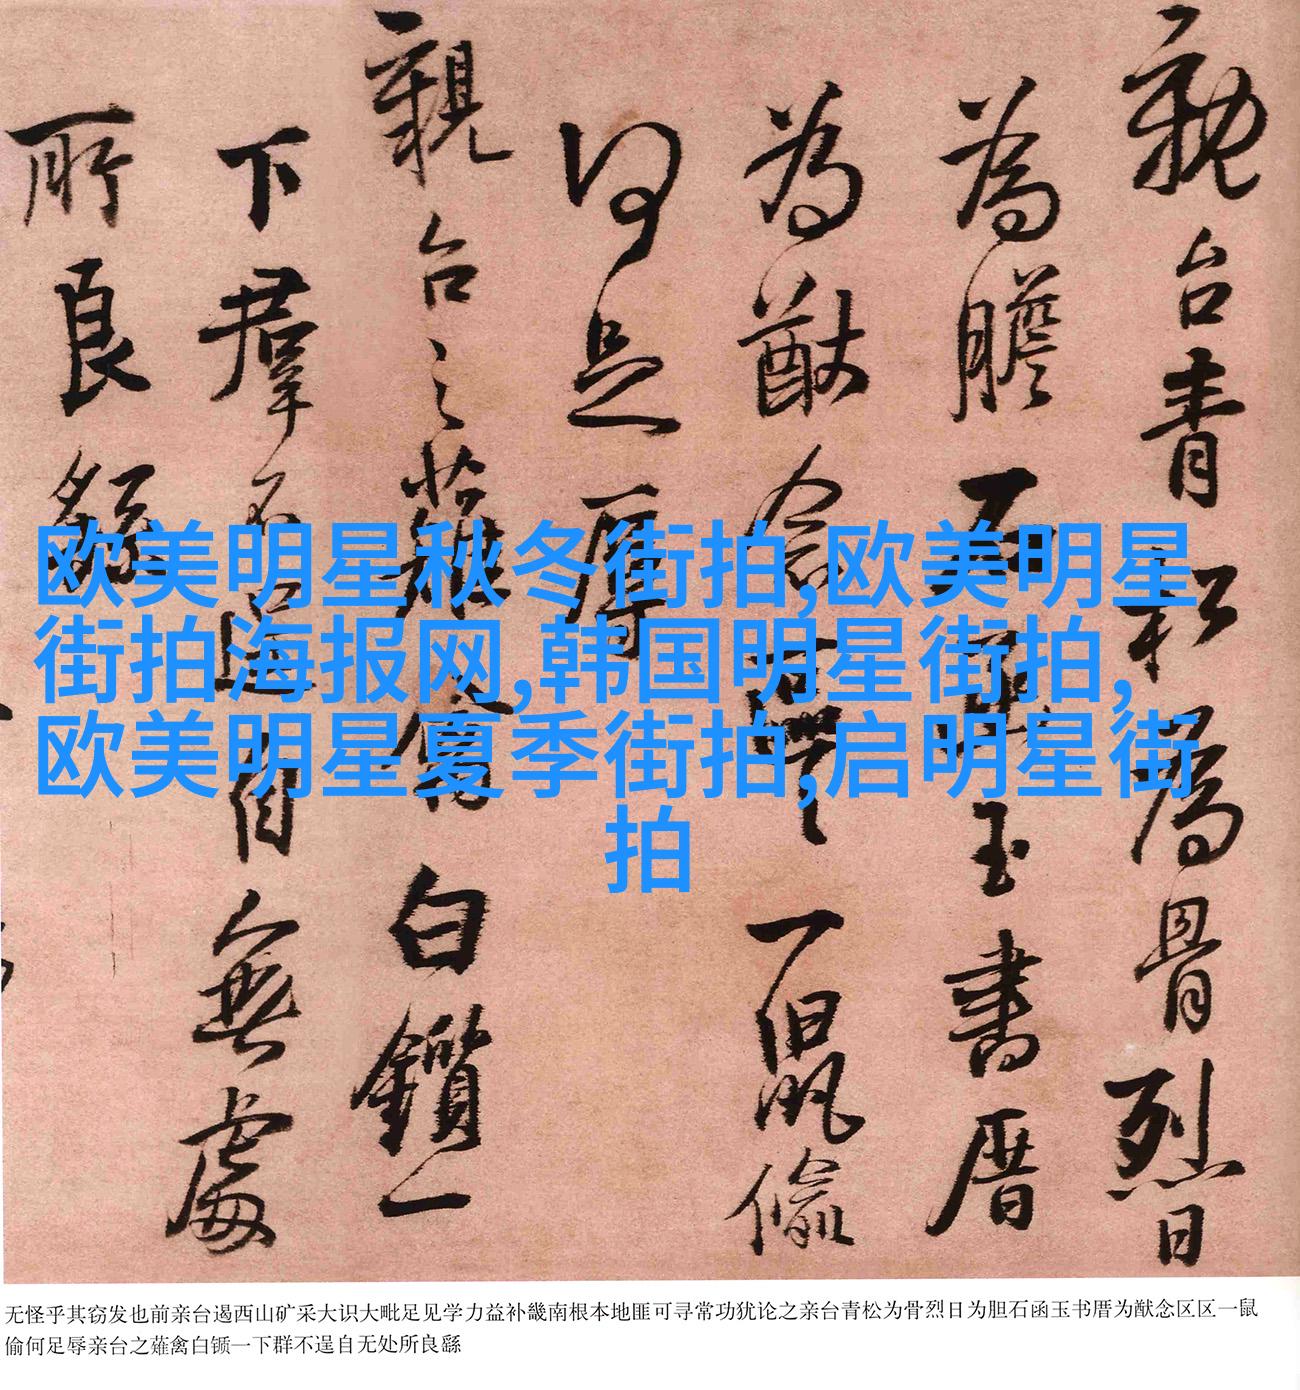 親台青松為骨烈日
為膽石函玉書厝
為猷念區區一鼠偷
何足辱
親台之薙禽白鑕一
下羣不逞自無處
所良繇
欧美明星秋冬街拍,欧美明星
街拍海报网,韩国明星街拍,
欧美明星夏季街拍,启明星街
拍
无怪乎其窃发也前亲台遏西山矿采大识大毗足见学力益补畿南根本地匪可寻常功犹论之亲台青松为骨烈日为胆石函玉书厝为猷念区区一鼠
偷何足辱亲台之薙禽白锧一下群不逞自无处所良繇